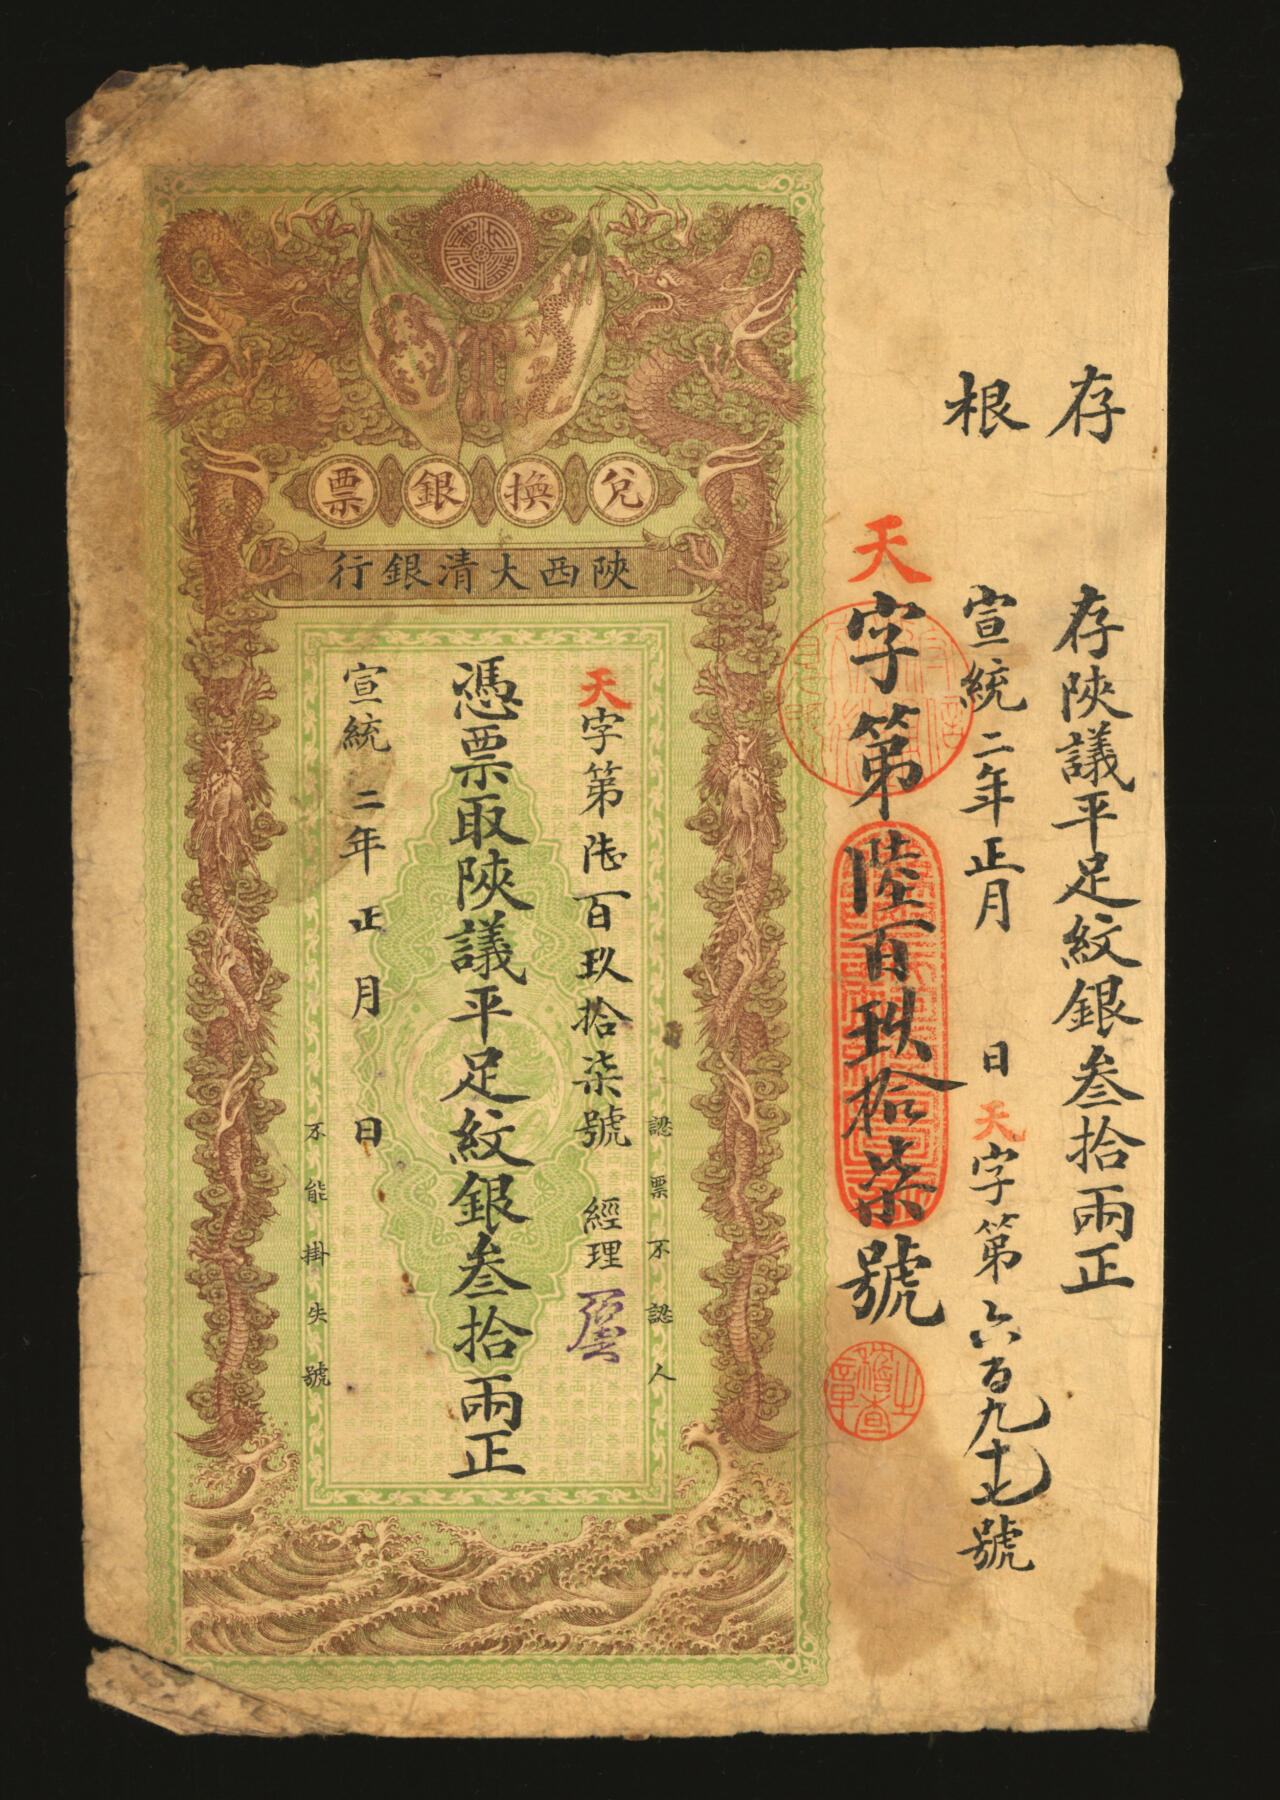 存根
存陝議平足紋銀叁拾兩正
宣統二年正月 日天字第六百九十七號
天字第陸百玖拾柒號
兌換銀票
陝西大清銀行
認票不認人
天字第陸百玖拾柒號 經理
憑票取陝議平足紋銀叁拾兩正
宣統二年正月 日
不能掛失號
稽查之章